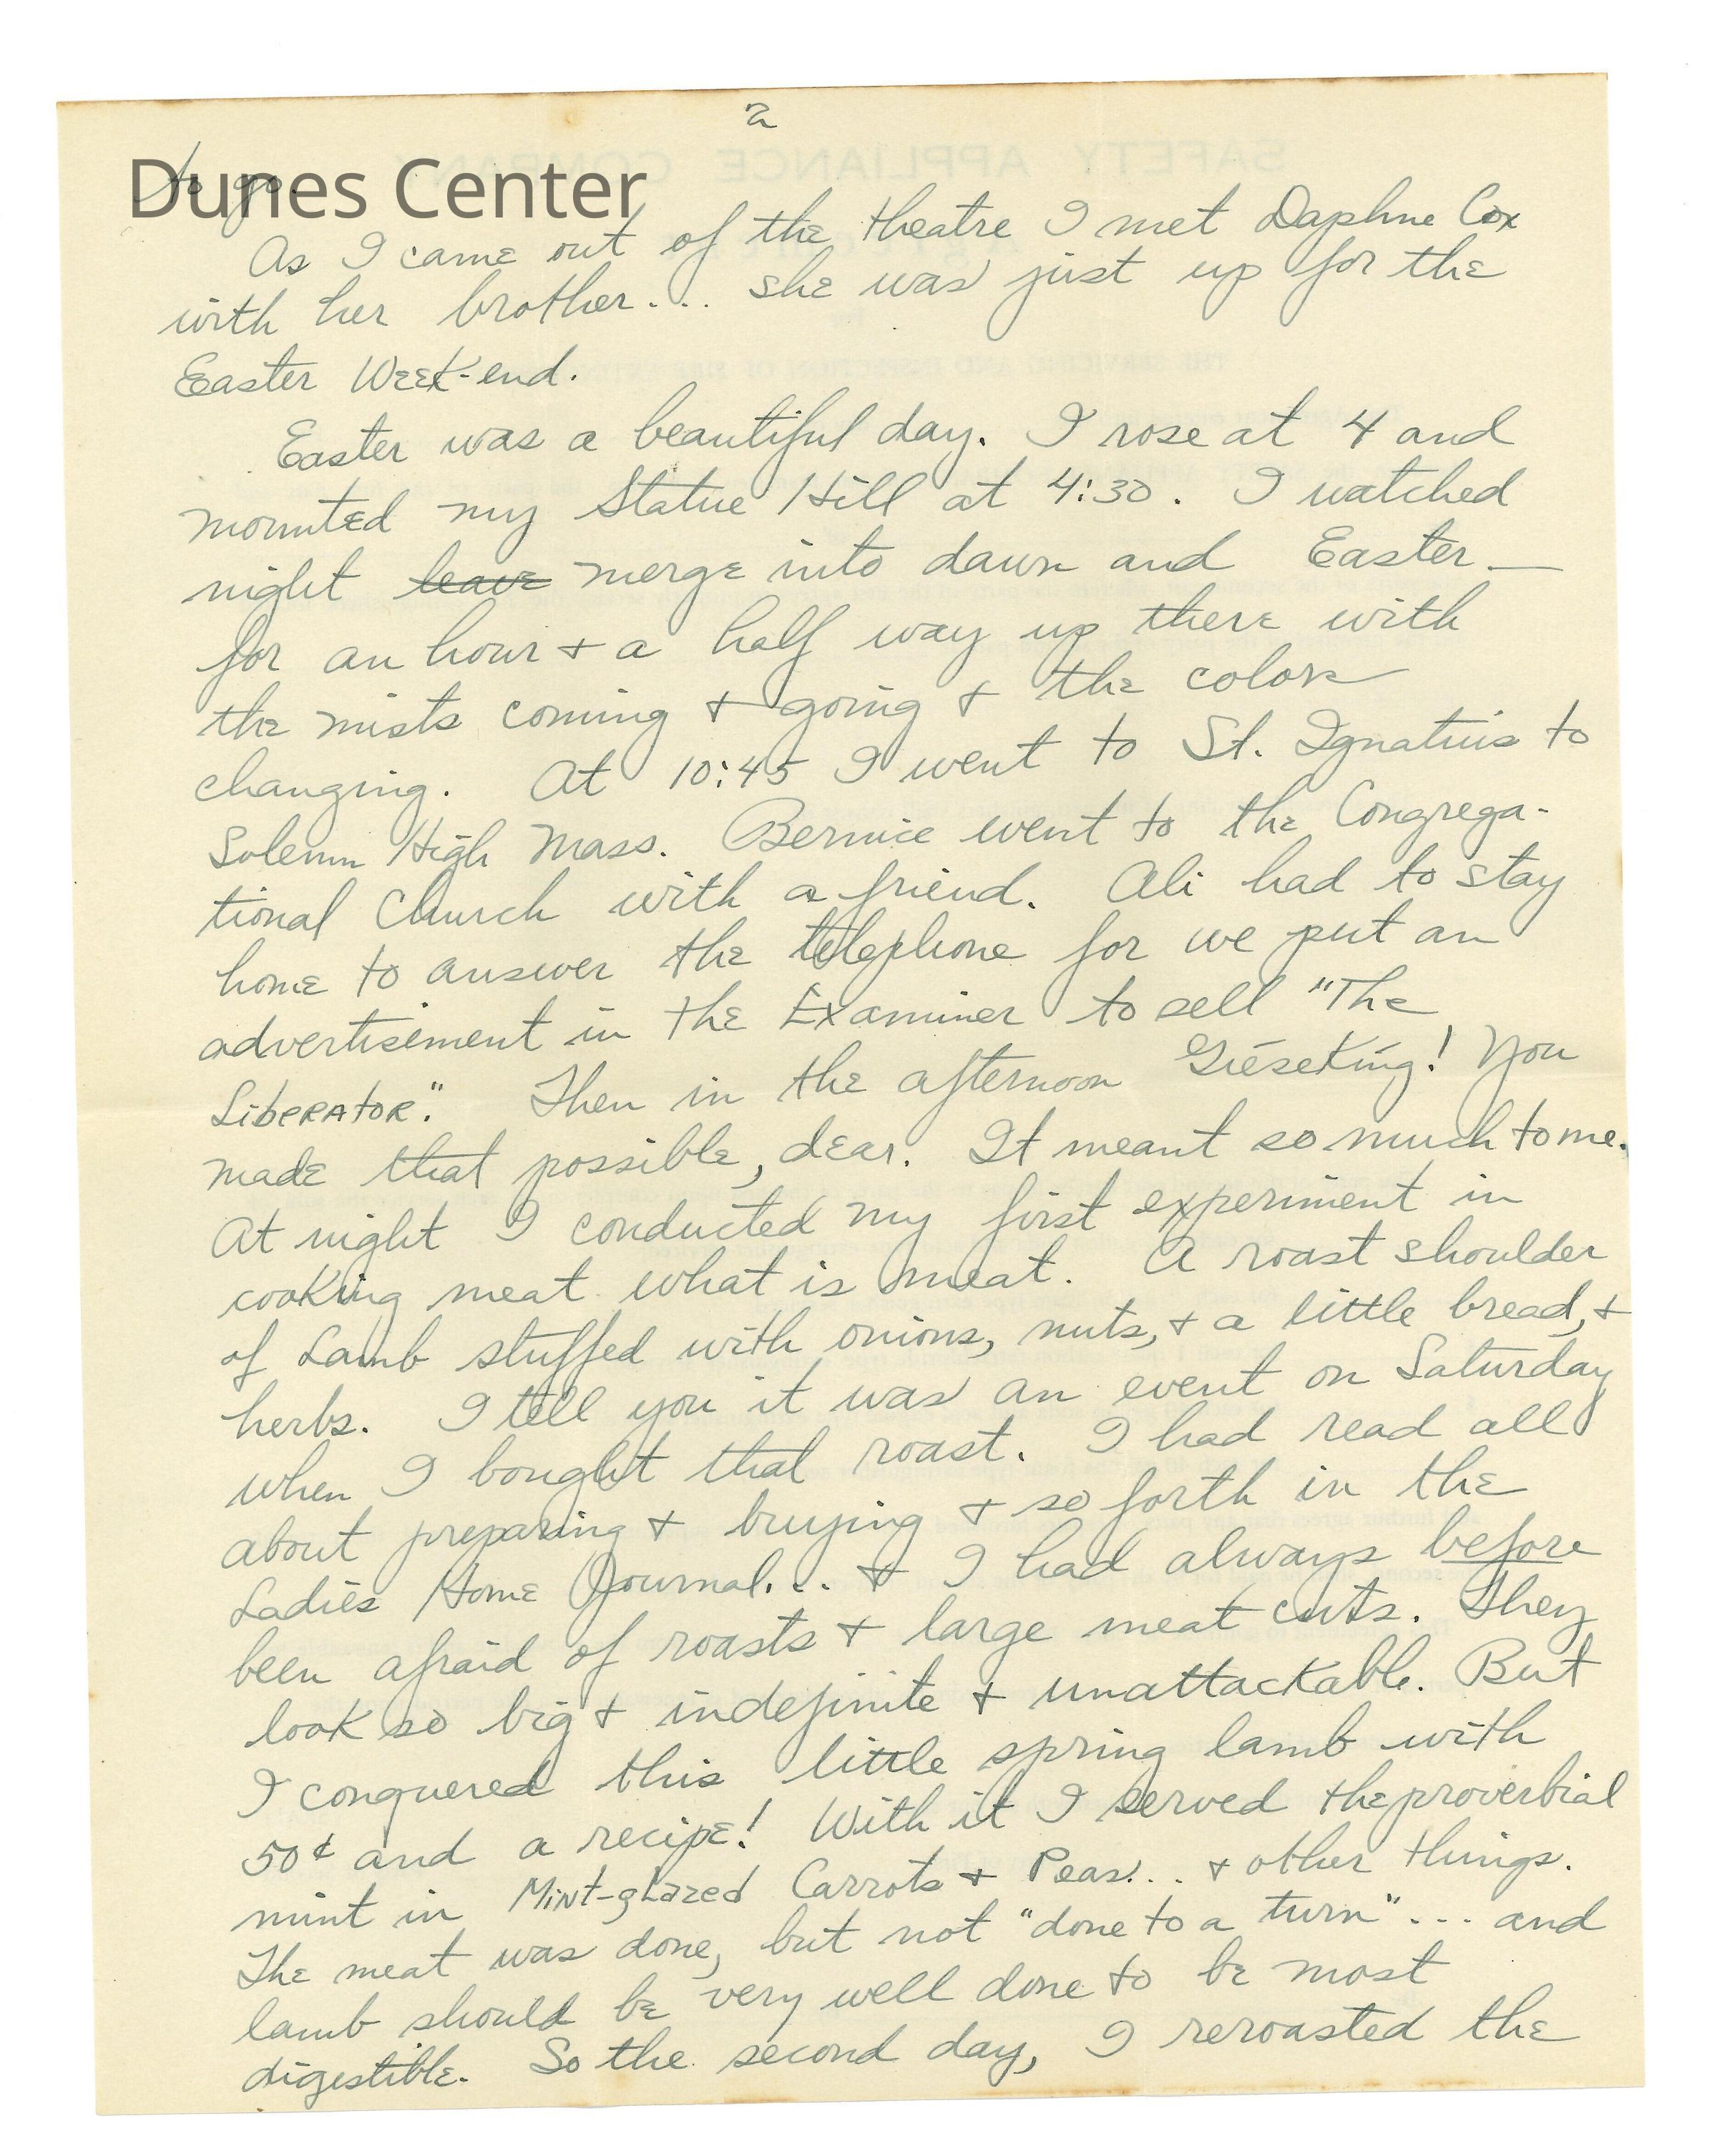 2
Dunes Center
to go.
As I came out of the theatre I met Daphne Cox
with her brother... she was just up for the
Easter Week-end.
Easter was a beautiful day. I rose at 4 and
mounted my Statue Hill at 4:30. I watched
night leave merge into dawn and Easter —
for an hour + a half way up there with
the mists coming + going + the colors
changing. At 10:45 I went to St. Ignatius to
Solemn High Mass. Bernice went to the Congrega-
tional Church with a friend. Ali had to stay
home to answer the telephone for we put an
advertisement in the Examiner to sell "The
Liberator." Then in the afternoon Gieseking! You
made that possible, dear. It meant so much to me.
At night I conducted my first experiment in
cooking meat what is meat. A roast shoulder
of Lamb stuffed with onions, nuts, + a little bread, +
herbs. I tell you it was an event on Saturday
when I bought that roast. I had read all
about preparing + buying + so forth in the
Ladies Home Journal... + I had always before
been afraid of roasts + large meat cuts. They
look so big + indefinite + unattackable. But
I conquered this little spring lamb with
50¢ and a recipe! With it I served the proverbial
mint in Mint-glazed Carrots + Peas... + other things.
The meat was done, but not "done to a turn"... and
lamb should be very well done to be most
digestible. So the second day, I reroasted the